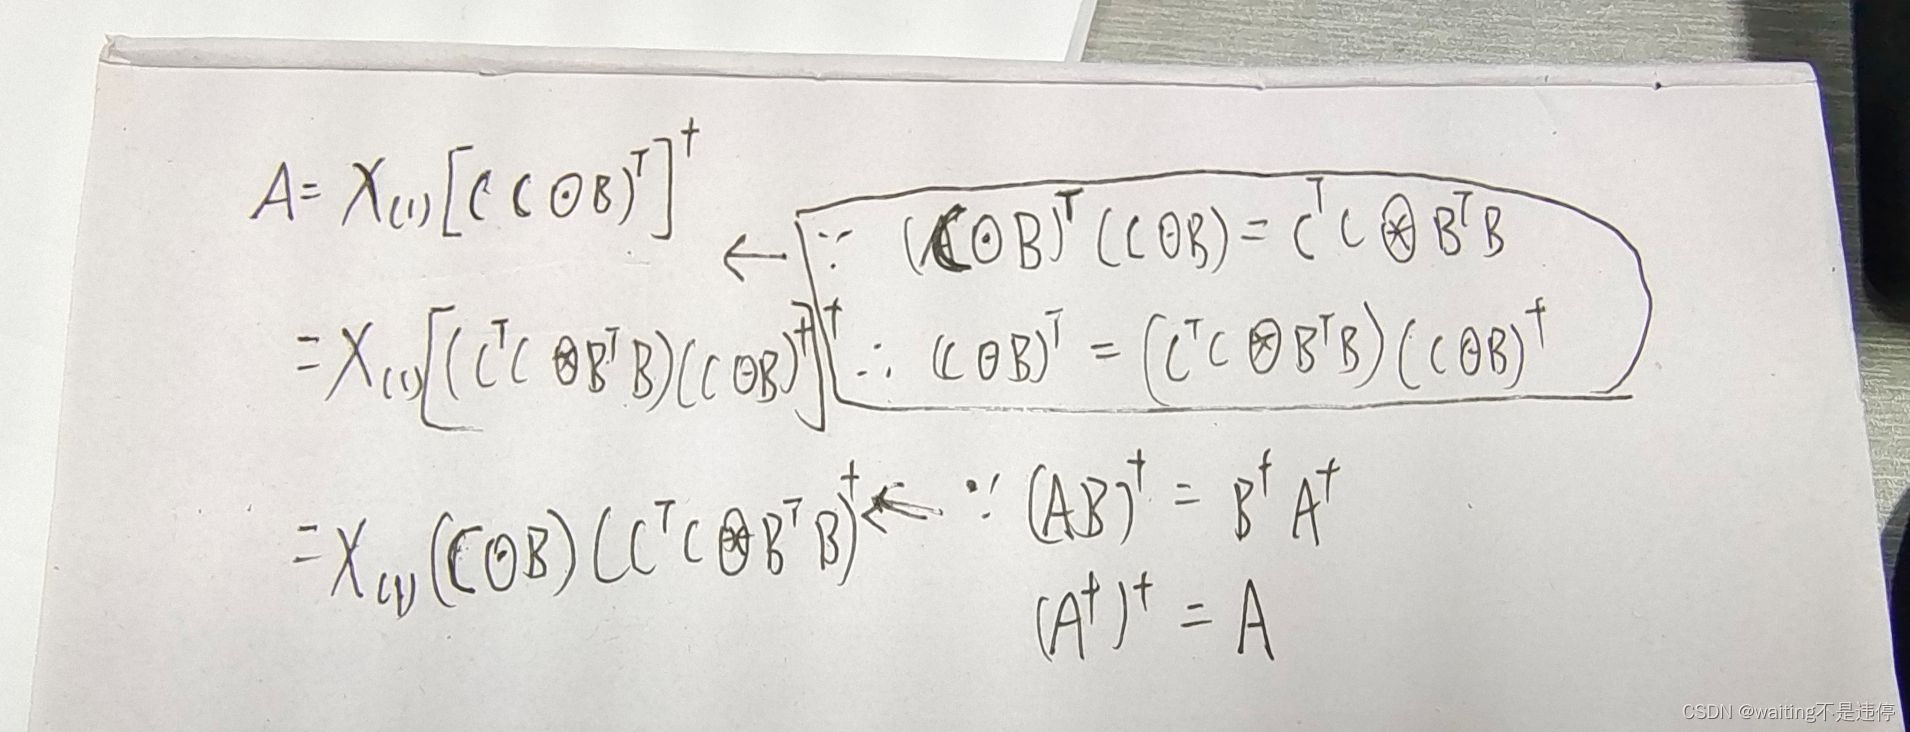 A = X₍₁₎[((C⊙B)ᵀ]†
← ∵ (C⊙B)ᵀ(C⊙B) = CᵀC⊛BᵀB
= X₍₁₎[(CᵀC⊛BᵀB)(C⊙B)†]†
∴ (C⊙B)ᵀ = (CᵀC⊛BᵀB)(C⊙B)†
= X₍₁₎(C⊙B)(CᵀC⊛BᵀB)† ← ∵ (AB)† = B†A†
(A†)† = A
CSDN @waiting不是违停